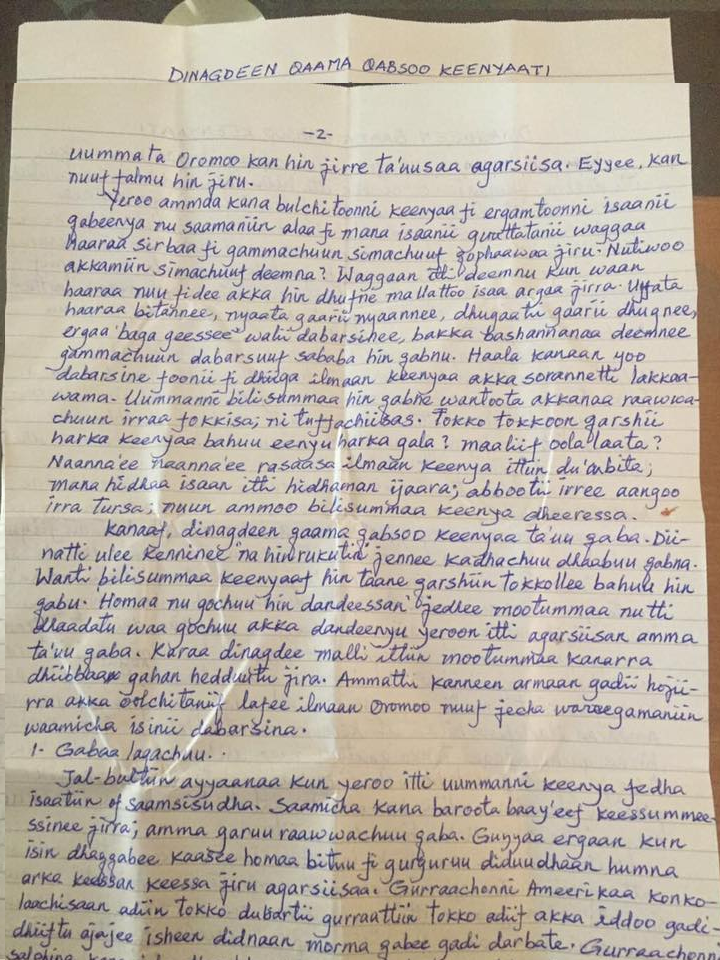 DINAGDEEN QAAMA QABSOO KEENYAATI
-2-
uummata Oromoo kan hin jirre ta'uusaa agarsiisa. Eyyee, kan
nuuf falmu hin jiru.
Yeroo ammda kana bulchitoonni keenyaa fi ergamtoonni isaanii
qabeenya nu saamaniin alaa fi mana isaanii guuttatanii waggaa
haaraa sirbaa fi gammachuun simachuuf qophaawaa jiru. Nutiwoo
akkamiin simachuuf deemna? Waggaan itti deemnu kun waan
haaraa nuu fidee akka hin dhufne mallattoo isaa argaa jirra. Uffata
haaraa bitannee, nyaata gaarii nyaannee, dhugaatii gaarii dhugnee,
ergaa 'baga geessee' walii dabarsinee, bakka bashannanaa deemnee
gammachuun dabarsuuf sababa hin qabnu. Haala kanaan yoo
dabarsine foonii fi dhiiga ilmaan keenyaa akka sorannetti lakkaa-
wama. Uummanni bilisummaa hin qabne wantoota akkanaa raawwa-
chuun irraa fokkisa; ni tuffachiisas. Tokko tokkoon qarshii
harka keenyaa bahuu eenyu harka gala? maaliif oola laata?
Naanna'ee naanna'ee rasaasa ilmaan keenya ittiin du'an bita;
mana hidhaa isaan itti hidhaman ijaara; abbootii irree aangoo
irra tursa; nuun ammoo bilisummaa keenya dheeressa.
Kanaaf, dinagdeen qaama qabsoo keenyaa ta'uu qaba. Dii-
natti ulee kenninee 'na hin rukutiin' jennee kadhachuu dhaabuu qabna.
Wanti bilisummaa keenyaaf hin taane qarshiin tokkollee bahuu hin
qabu. 'Homaa nu gochuu hin dandeessan' jedhee mootummaa nutti
dhaadatu waa gochuu akka dandeenyu yeroon itti agarsiisan amma
ta'uu qaba. Karaa dinagdee malli ittiin mootummaa kanarra
dhiibbaan gahan hedduutu jira. Ammatti kanneen armaan gadii hojii-
rra akka oolchitaniif lafee ilmaan Oromoo nuuf jecha wareegamaniin
waamicha isinii dabarsina.
1. Gabaa lagachuu.
Jal-bultiin ayyaanaa kun yeroo itti uummanni keenya fedha
isaatiin of saamsisudha. Saamicha kana baroota baay'eef keessumme-
ssinee jirra; amma garuu raawwachuu qaba. Guyyaa ergaan kun
isin dhaqqabee kaasee homaa bituu fi gurguruu diduudhaan humna
arka keessan keessa jiru agarsiisaa. Gurraachonni Ameerikaa konko-
laachisaan adiin tokko dubartii gurraattiin tokko adiif akka iddoo gadi-
dhiiftu ajajee isheen didnaan morma qabee gadi darbate. Gurraachonni